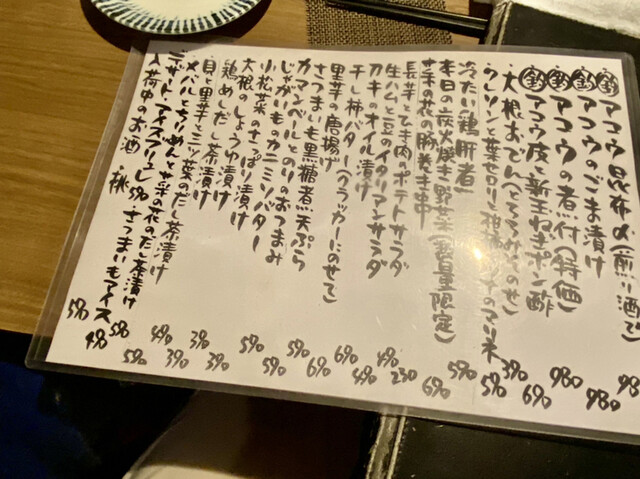 釣 アコウ昆布〆(煎り酒で) 98
釣 アコウのごま漬け 980
釣 アコウの煮付(特価) 980
釣 アコウ皮と新玉ねぎポン酢 690
大根おでん(とろろみそのせ) 390
クレソンと葉セロリとのマリネ 590
冷たい鶏肝煮 590
本日の炭火焼き野菜(数量限定)
芋の花の豚巻き串 230
長芋とひき肉のポテトサラダ 490
生ハムと豆のイタリアンサラダ 690
カキのオイル漬け 490
干し柿バター(クラッカーにのせて) 690
里芋の唐揚げ 590
さつまいも黒糖煮天ぷら 690
カマンベールとのりのおつまみ 590
じゃがいものカニミソバター 590
小松菜のさっぱり漬け 390
大根のしょうゆ漬け 390
鶏めしだし茶漬け
貝と里芋と三ツ葉のだし茶漬け
メバルとちりめんと芋の花のだし茶漬け 590
デザート アイスブリュレ 590 さつまいもアイス 490
入荷中のお酒 桃 590